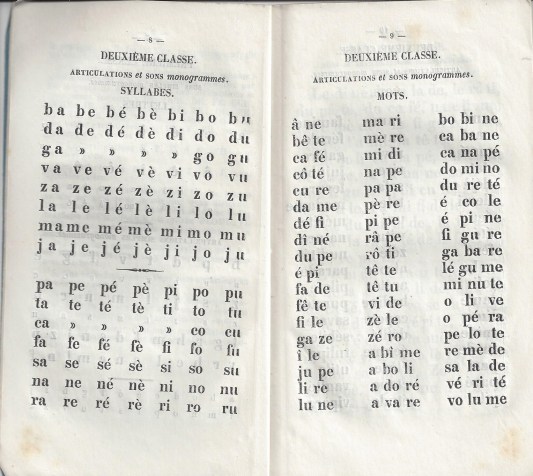 — 8 —
DEUXIÈME CLASSE.
ARTICULATIONS et SONS monogrammes.
SYLLABES.
ba be bé bè bi bo bu
da de dé dè di do du
ga » » » » go gu
va ve vé vè vi vo vu
za ze zé zè zi zo zu
la le lé lè li lo lu
ma me mé mè mi mo mu
ja je jé jè ji jo ju
pa pe pé pè pi po pu
ta te té tè ti to tu
ca » » » » co cu
fa fe fé fè fi fo fu
sa se sé sè si so su
na ne né nè ni no nu
ra re ré rè ri ro ru
— 9 —
DEUXIÈME CLASSE.
ARTICULATIONS et SONS monogrammes.
MOTS.
â ne ma ri bo bi ne
bê te mè re ca ba ne
ca fé mi di ca na pé
cô té na pe do mi no
cu re pa pa du re té
da me pè re é co le
dé fi pi pe é pi ne
dî né râ pe fi gu re
du pe rô ti ga ba re
é pi tê te lé gu me
fa de tê tu mi nu te
fê te vi de o li ve
fi le zè le o pé ra
ga ze zé ro pe lo te
î le a bi me re mè de
ju pe a bo li sa la de
li re a do ré vé ri té
lu ne a va re vo lu me